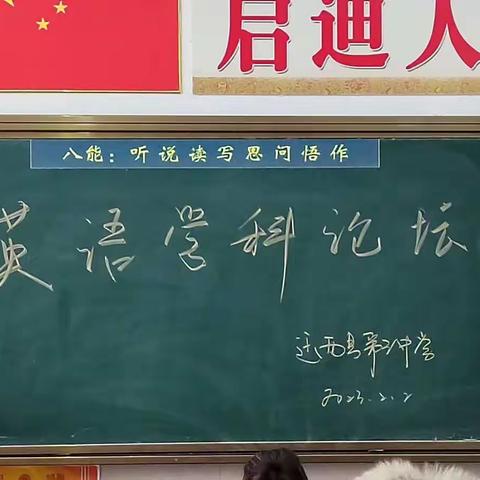 启迪人
八能：听说读写思问悟作
英语学科论坛
迁西县第三中学
2023.2.2